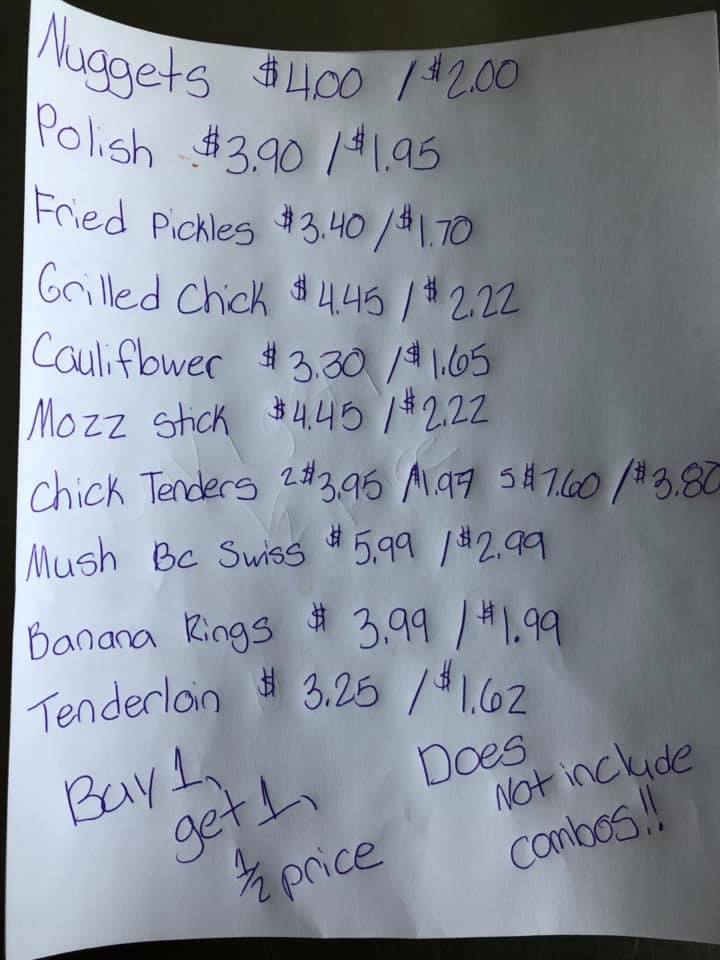 Nuggets $4.00 / $2.00
Polish $3.90 / $1.95
Fried Pickles $3.40 / $1.70
Grilled Chick $4.45 / $2.22
Cauliflower $3.30 / $1.65
Mozz Stick $4.45 / $2.22
Chick Tenders 2 $3.95 / $1.97 5 $7.60 / $3.80
Mush Bc Swiss $5.99 / $2.99
Banana Rings $3.99 / $1.99
Tenderloin $3.25 / $1.62
Buy 1,
get 1,
1/2 price
Does
Not include
combos!!